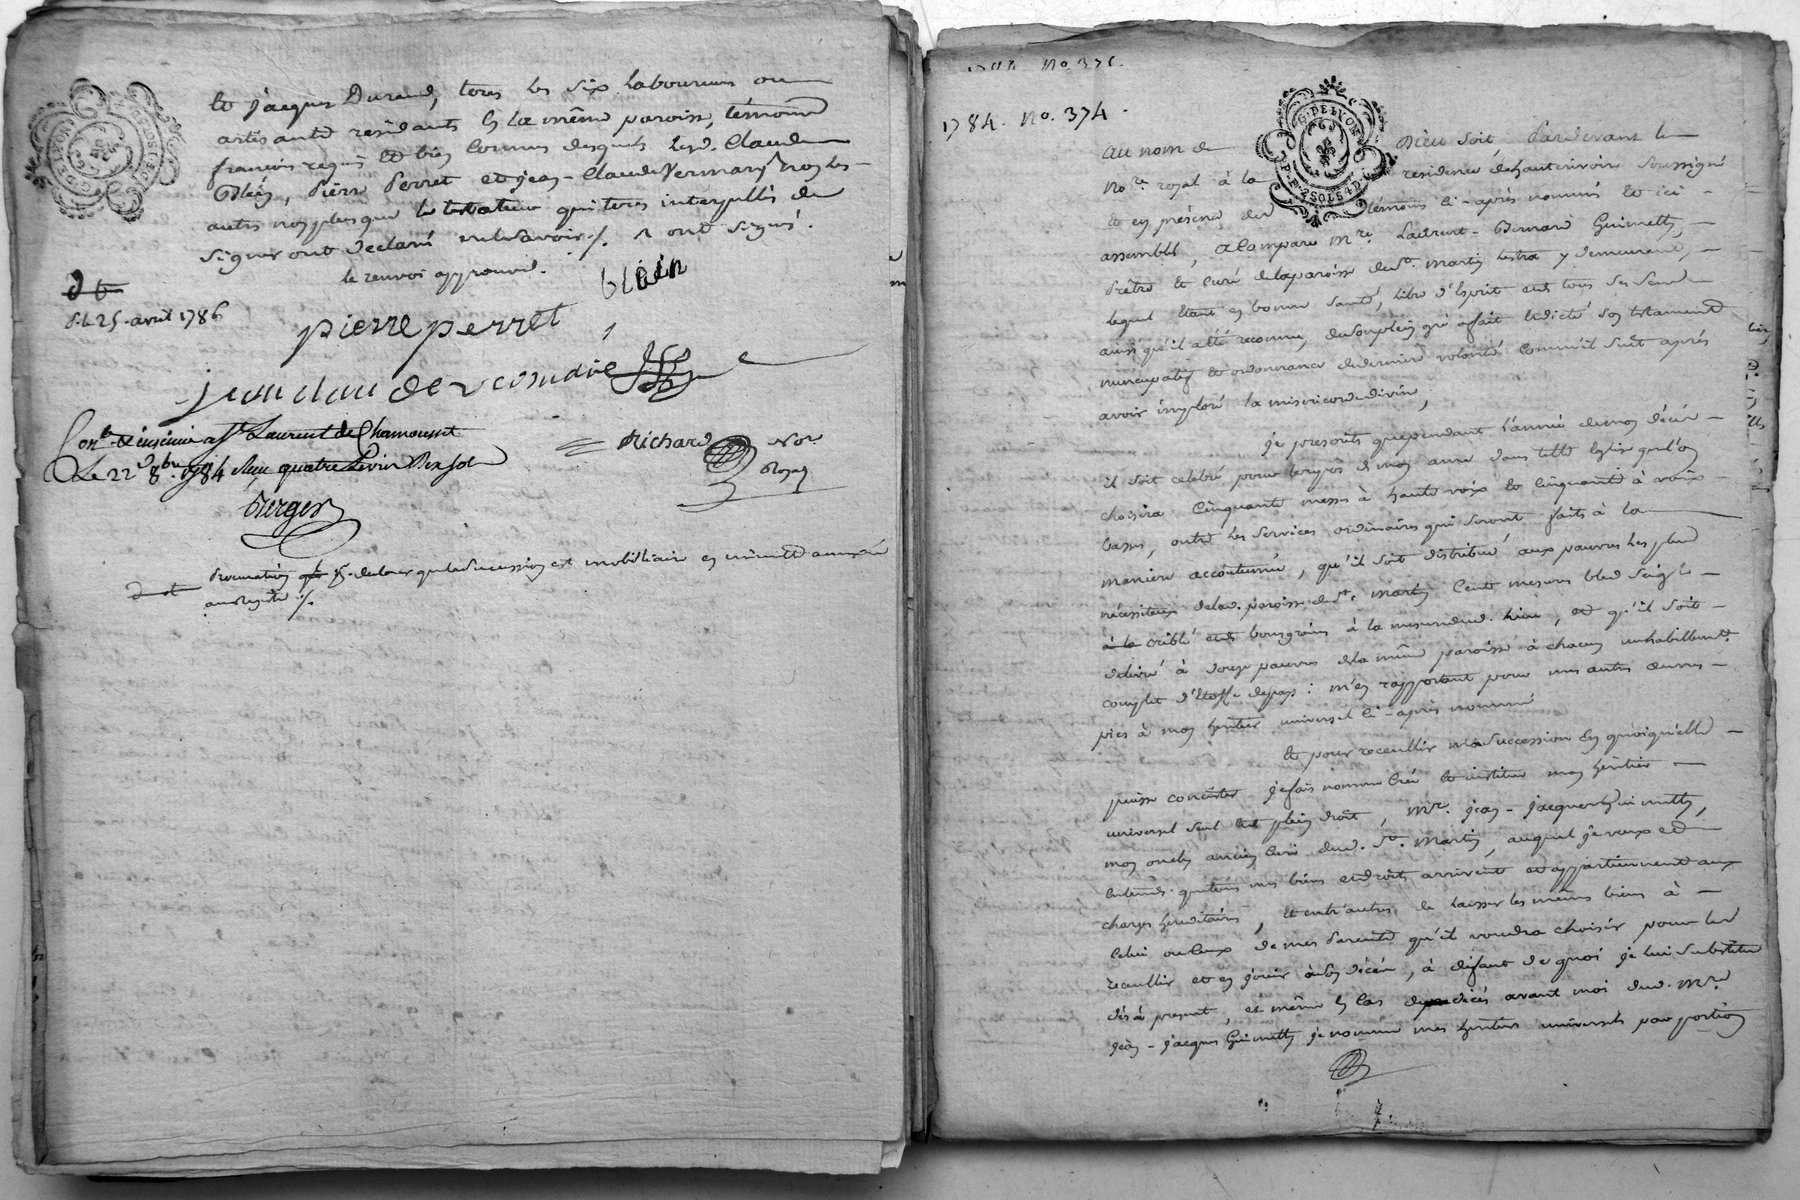 et jacques Durand, tous les six laboureurs ou
artisants residants en la même paroisse, témoins
requis et bien connus desquels led. Claude
Bléin, Pierre Perret et jean-Claude Vermare
autres non plus que le testateur qui tous interpellés de
signer ont declaré ne le savoir ./. ont signés.
le renvoi approuvé.
blein
d. le 25. avril 1786
pierre perret
jean claude
Con.lé & insinué a St. Laurent de Chamousset
Le 22 8bre 1784 Reçu quatre Livres Dix sols
Richard No.re
Royal
Berger
succession est mobilliaire
1784. No. 374.
G. DE LYON
Au nom de Dieu soit, Pardevant le
No.re royal à la residence de hauterivoire soussigné
et en présence des témoins ci-après nommés et ici
assemblés, a comparu M.re Laurent-Bernard Guimetty,
Prêtre et curé de la paroisse de St. Martin Lestra y demeurant,
lequel étant en bonne santé, libre d'Esprit et de tous ses sens
ainsi qu'il a été reconnu, de son plein gré a fait et dicté son testament
nuncupatif et ordonnance de derniere volonté comme il suit après
avoir imploré la misericorde divine,
je prescrits que pendant l'année de mon décès
il soit celebré pour le repos de mon ame dans telle Eglise qu'on
choisira Cinquante messes à haute voix et Cinquante à voix
basse, outre les services ordinaires qui seront faits à la
maniere accoutumée, qu'il soit distribué aux pauvres les plus
nécessiteux de lad. paroisse de St. Martin Cent mesures bled seigle
criblé et de bon grain à la mesure dud. lieu, et qu'il soit
delivré à douze pauvres de la même paroisse à chacun un habillement
complet d'étoffe de pays: m'en rapportant pour mes autres œuvres
pies à mon heritier universel ci-après nommé
et pour receuillir ma succession en quoiqu'elle
puisse consister je fais nomme créé et institue mon heritier
universel seul et de plein droit, Mr. jean-jacques Guimetty,
mon oncle ancien curé dud. St. Martin, auquel je veux et
entends que tous mes biens et droits arrivent et appartiennent aux
charges hereditaires, et entr'autres de laisser les mêmes biens à
Celui ou Ceux de mes Parents qu'il voudra choisir pour les
receuillir et en jouir à son décès, à défaut de quoi je lui substitue
dès à present, et même en cas de décès avant moi dud. Mr.
jean-jacques Guimetty je nomme mes heritiers universels par portion